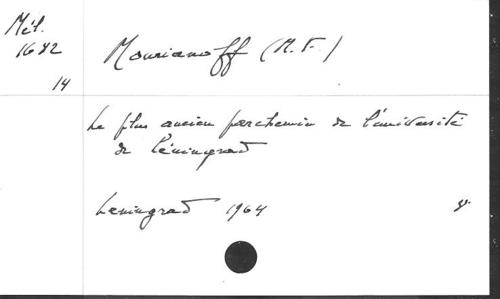 Mél.
1682
14
Mourianoff (M. F.)
Le plus ancien parchemin de l'université
de Léningrad
Leningrad 1964